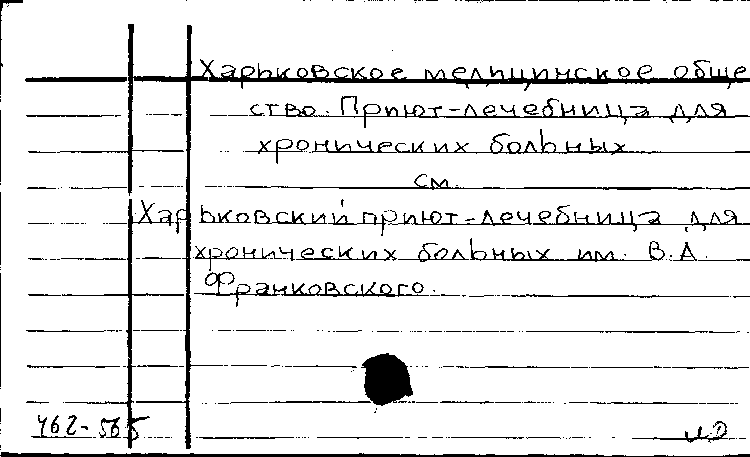 Харьковское медицинское обще
ство. Приют-лечебница для
хронических больных
см.
Харьковский приют-лечебница для
хронических больных им. В.А.
Франковского.
462-565